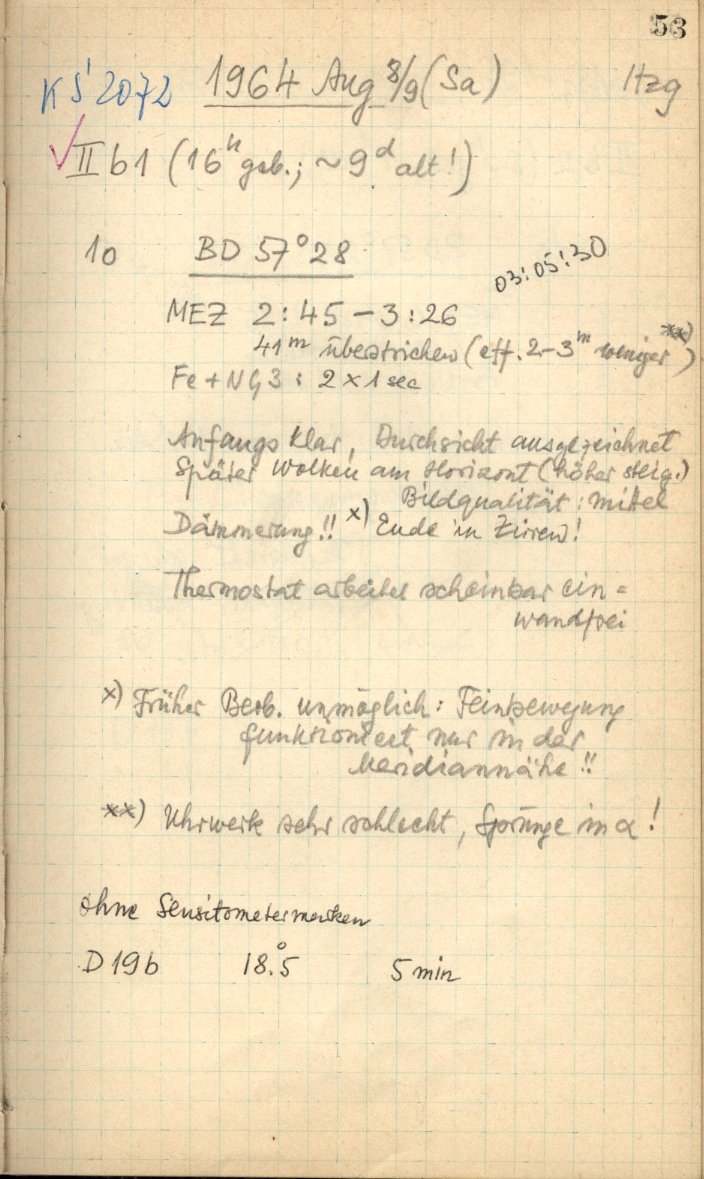 53
KS 2072 1964 Aug 8/9 (Sa) Hzg
✓ II b 1 (16h geb.; ~ 9d alt!)
10 BD 57° 28
03:05:30
MEZ 2:45 – 3:26
41m überstrichen (eff. 2–3m weniger xx))
Fe + NG3: 2 x 1 sec
Anfangs klar, Durchsicht ausgezeichnet
Später Wolken am Horizont (höher steig.)
Bildqualität: mittel
Dämmerung!! x) Ende in Zirren!
Thermostat arbeitet scheinbar ein=
wandfrei
x) Früher Beob. unmöglich: Feinbewegung
funktioniert nur in der
Meridiannähe!!
xx) Uhrwerk sehr schlecht, Sprünge in α!
ohne Sensitometermarken
D19b 18.°5 5 min